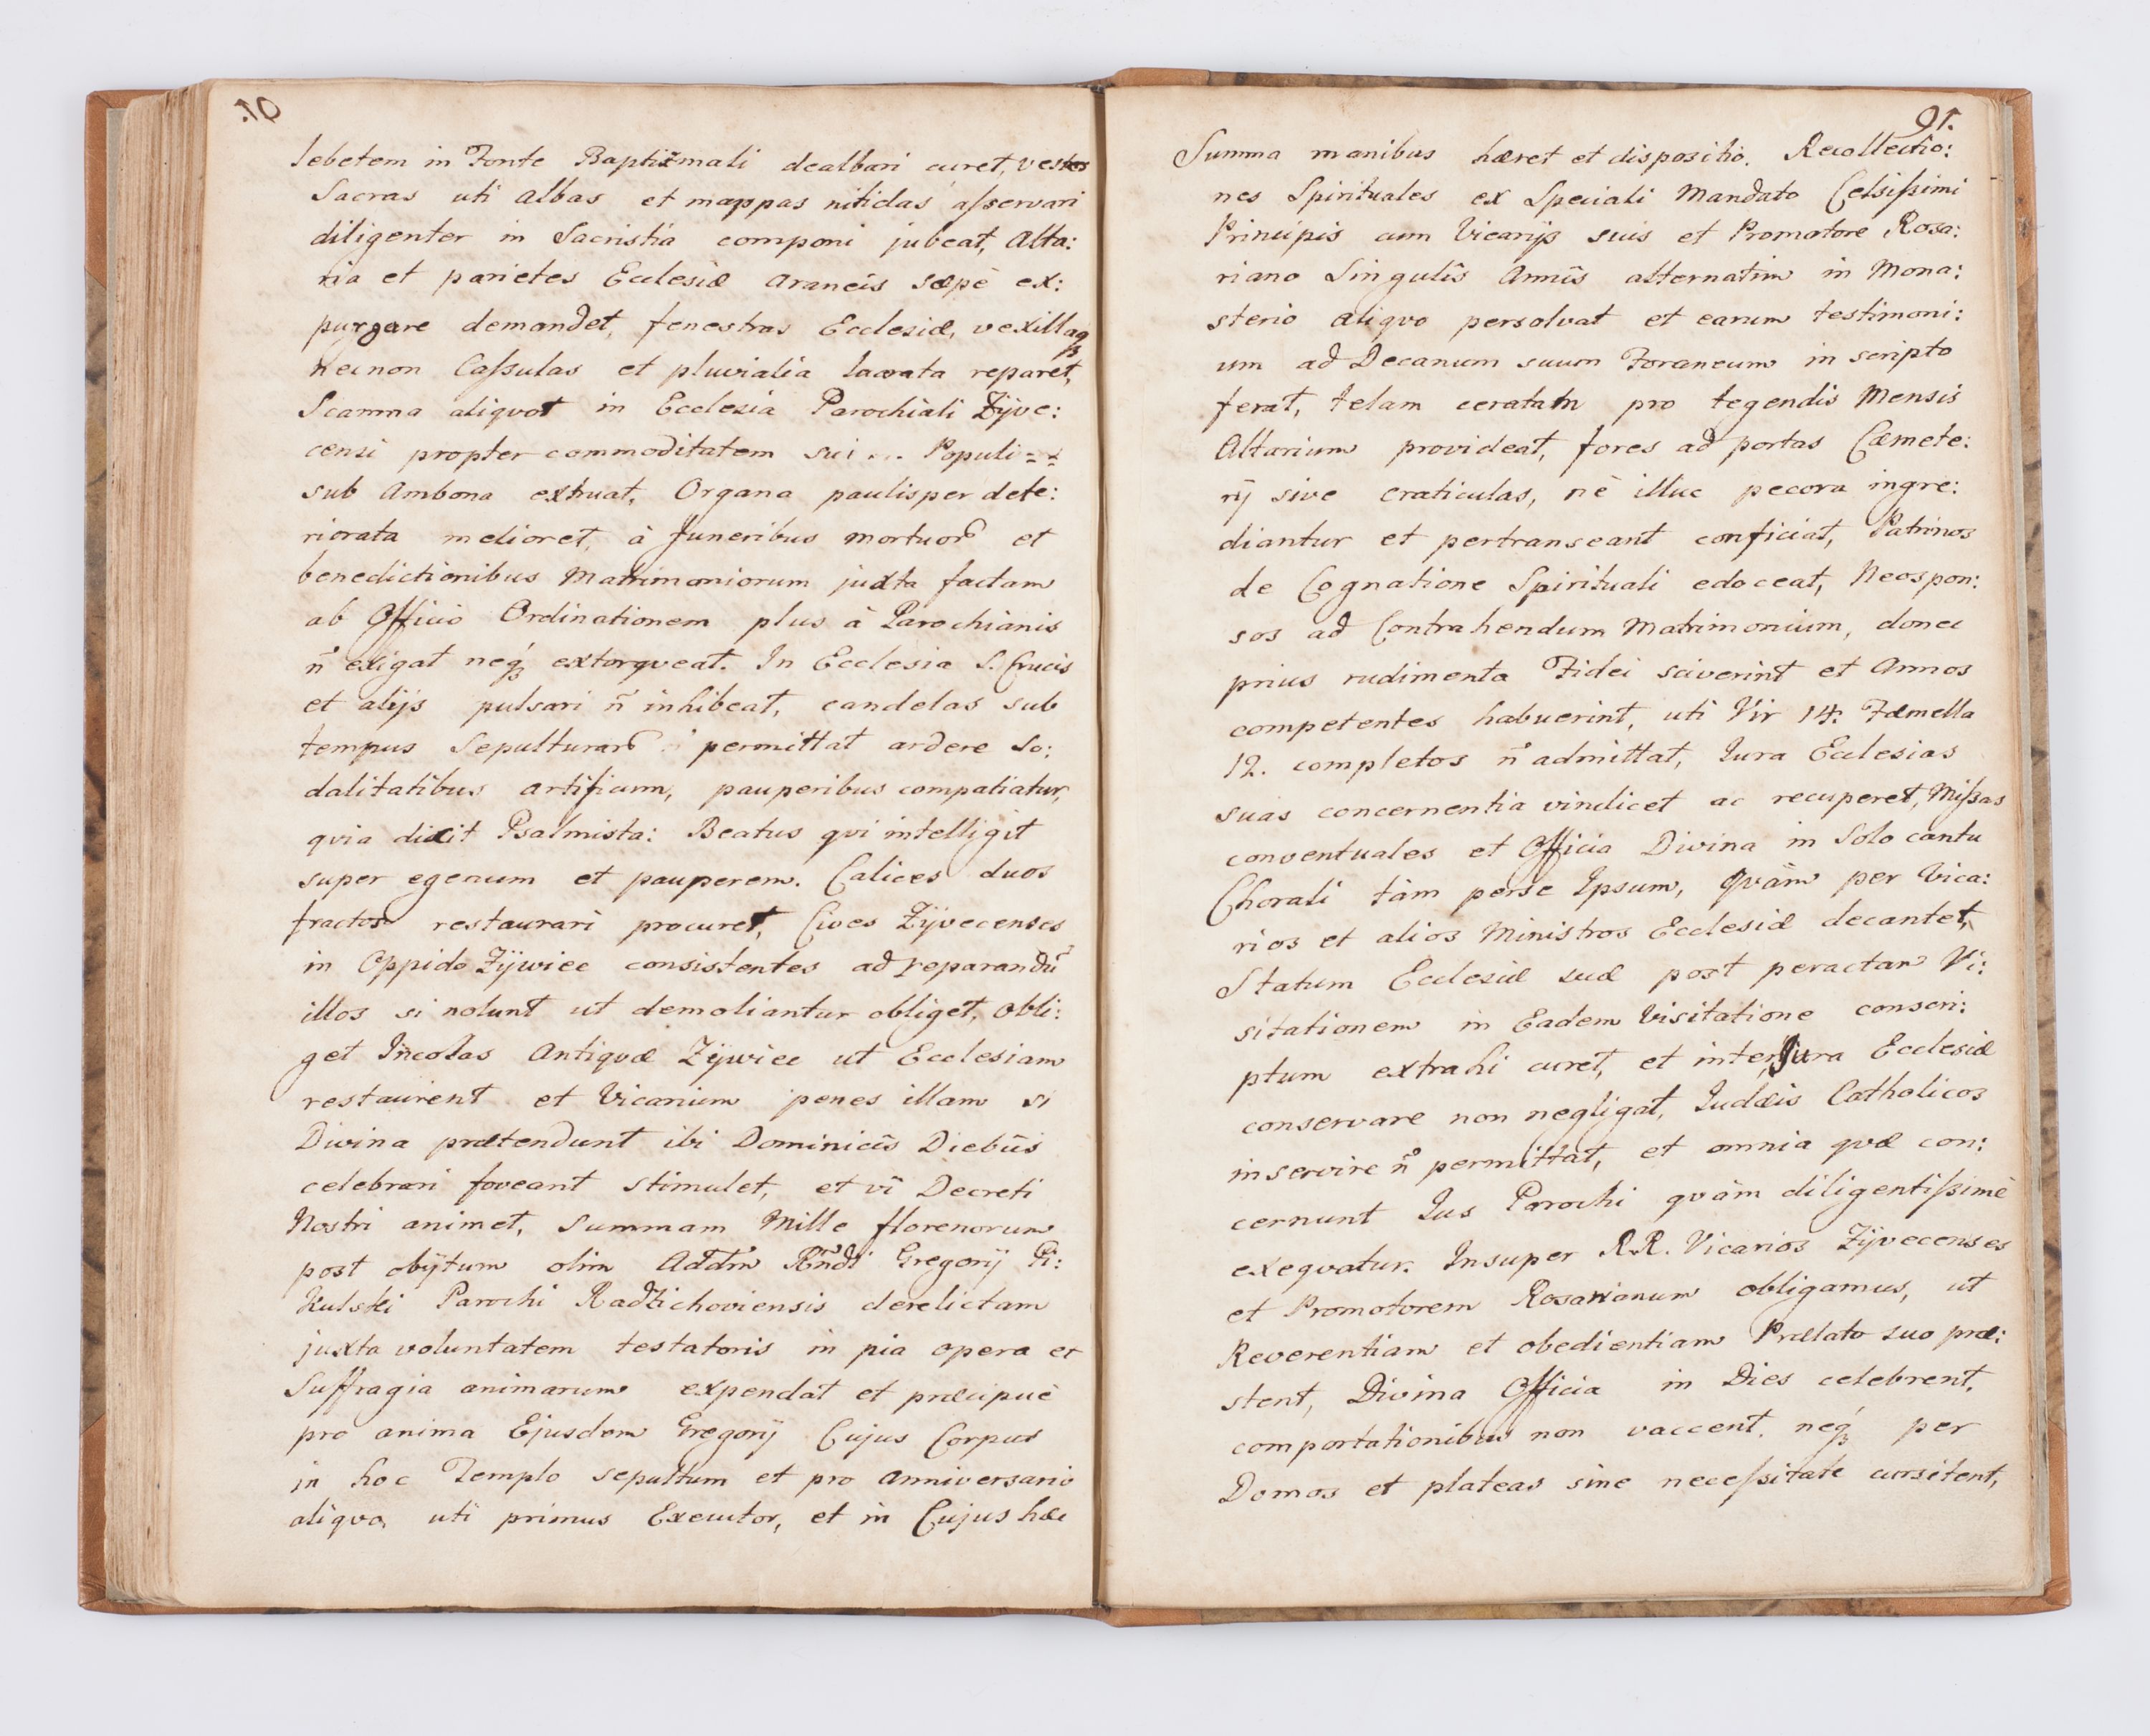 lebetem in Fonte Baptismali dealbari curet, vestes
Sacras uti albas et mappas nitidas asservari
diligenter in Sacristia componi jubeat, Alta:
ria et parietes Ecclesiæ araneis sæpè ex:
purgare demandet, fenestras Ecclesiæ, vexillaq
necnon Cassulas et pluvialia lacerata reparet,
Scamna aliquot in Ecclesia Parochiali Zÿve:
censi propter commoditatem sui ... Populi
sub Ambona extruat, Organa paulisper dete:
riorata melioret, à funeribus mortuor et
benedictionibus Matrimoniorum juxta factam
ab Officio Ordinationem plus à Parochianis
n̄ exigat neq extorqveat. In Ecclesia S. Crucis
et alijs pulsari n̄ inhibeat, candelas sub
tempus Sepulturar permittat ardere So:
dalitatibus artificum, pauperibus compatiatur,
qvia dixit Psalmista: Beatus qvi intelligit
super egenum et pauperem. Calices duos
fractos restaurari procuret, Cives Zÿvecenses
in Oppido Zÿwiec consistentes ad reparandū
illos si nolunt ut demoliantur obliget, obli:
get Incolas Antiqvæ Zÿwiec ut Ecclesiam
restaurent et Vicarium penes illam si
Divina prætendunt ibi Dominicis Diebus
celebrari foveant stimulet, et vi Decreti
Nostri animet, Summam Mille florenorum
post obÿtum olim Addm Rndi Gregorÿ Gi:
Kulski Parochi Radzichoviensis derelictam
juxta voluntatem testatoris in pia opera et
Suffragia animarum expendat et præcipuè
pro anima Ejusdem Gregorÿ Cujus Corpus
in hoc Templo sepultum et pro Anniversario
aliqvo, uti primus Executor, et in Cujus hæc
91.
Summa manibus hæret et dispositio. Recollectio:
nes Spirituales ex Speciali Mandato Celsissimi
Principis cum Vicarijs suis et Promotore Rosa:
riano Singulis Annis alternatim in Mona:
sterio aliqvo persolvat et earum testimoni:
um ad Decanum suum Foraneum in scripto
ferat, telam ceratam pro tegendis Mensis
Altarium provideat, fores ad portas Cæmete:
rÿ sive craticulas, nè illuc pecora ingre:
diantur et pertranseant conficiat, Patrinos
de Cognatione Spirituali edoceat, Neospon:
sos ad Contrahendum Matrimonium, donec
prius rudimenta Fidei sciverint et Annos
competentes habuerint, uti Vir 14. Fæmella
12. completos n̄ admittat, Jura Ecclesias
suas concernentia vindicet ac recuperet, Missas
conventuales et Officia Divina in Solo cantu
Chorali tàm perse Ipsum, qvàm per Vica:
rios et alios Ministros Ecclesiæ decantet,
Statum Ecclesiæ suæ post peractam Vi:
sitationem in Eadem Visitatione conscri:
ptum extrahi curet, et inter Jura Ecclesiæ
conservare non negligat, Judæis Catholicos
inservire n̄ permittat, et omnia qvæ con:
cernunt Jus Parochi qvàm diligentissimè
exeqvatur. Insuper R.R. Vicarios Zÿvecenses
et Promotorem Rosarianum obligamus, ut
Reverentiam et obedientiam Prælato suo præ:
stent, Divina Officia in Dies celebrent,
comportationibus non vaccent, neq per
Domos et plateas sine necessitate cursitent,